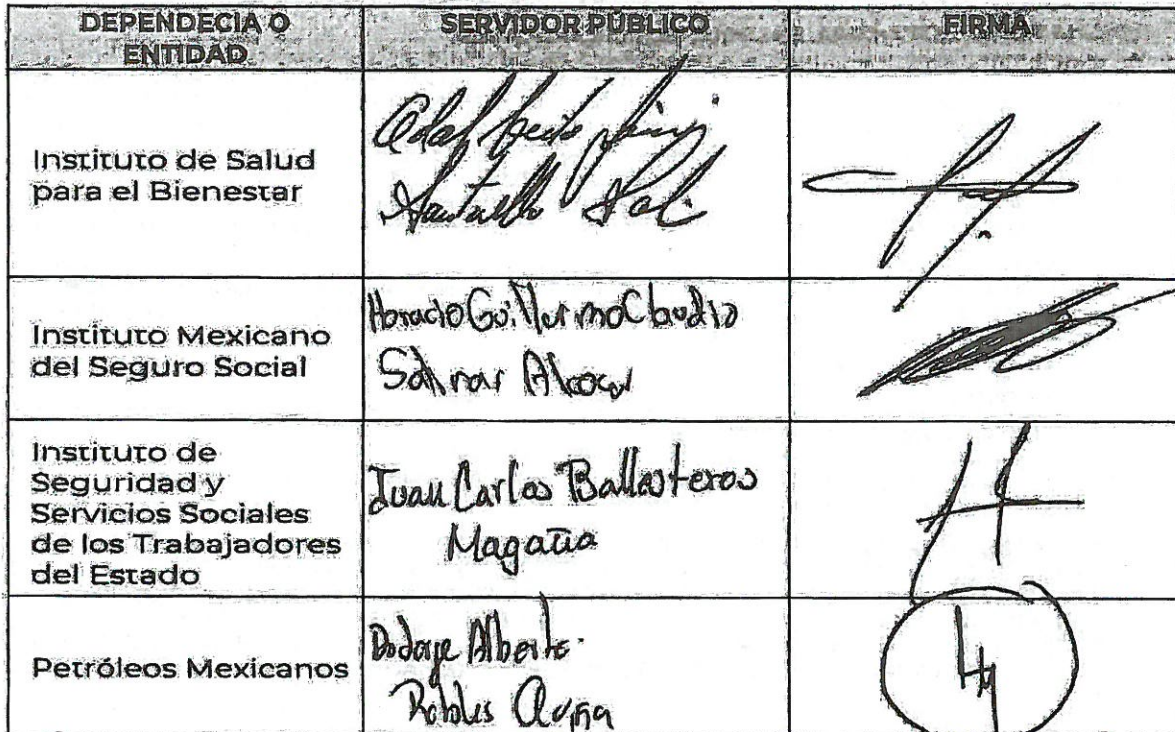 DEPENDECIA O
ENTIDAD
SERVIDOR PÚBLICO
FIRMA
Instituto de Salud
para el Bienestar
Santaella
Instituto Mexicano
del Seguro Social
Horacio Guillermo Claudio
Salinas Alcocer
Instituto de
Seguridad y
Servicios Sociales
de los Trabajadores
del Estado
Juan Carlos Ballesteros
Magaña
Petróleos Mexicanos
Alberto
Robles